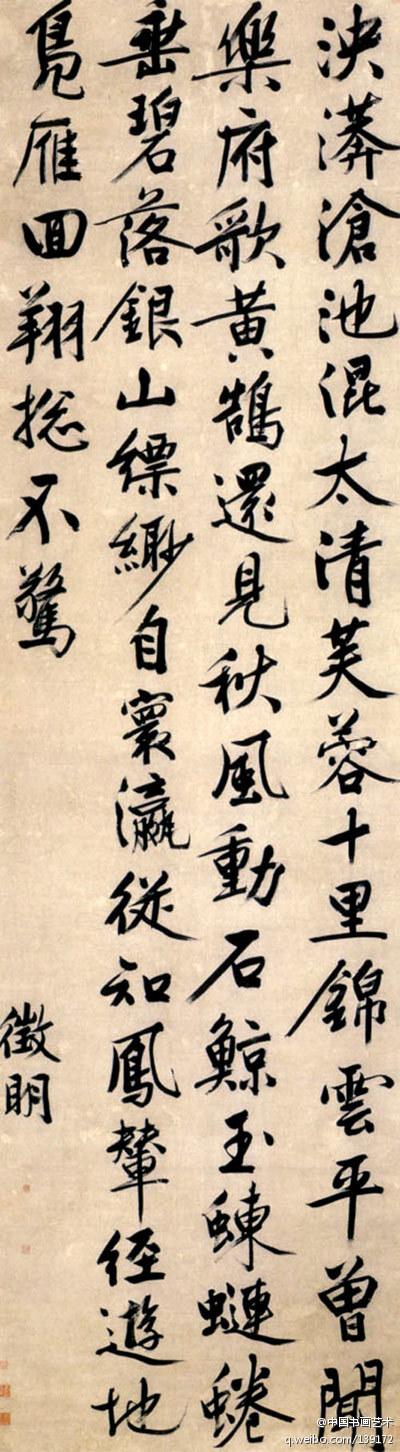 泱漭滄池混太清芙蓉十里錦雲平曾聞
樂府歌黃鵠還見秋風動石鯨玉蝀蜷
垂碧落銀山縹緲自寰瀛從知鳳輦經遊地
鳧雁囬翔捴不驚
徵明
@中国书画艺术
q.weibo.com/139172